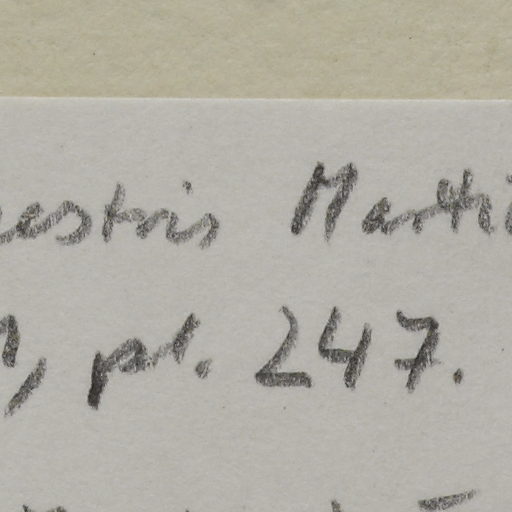 estris Matti
, pl. 247.